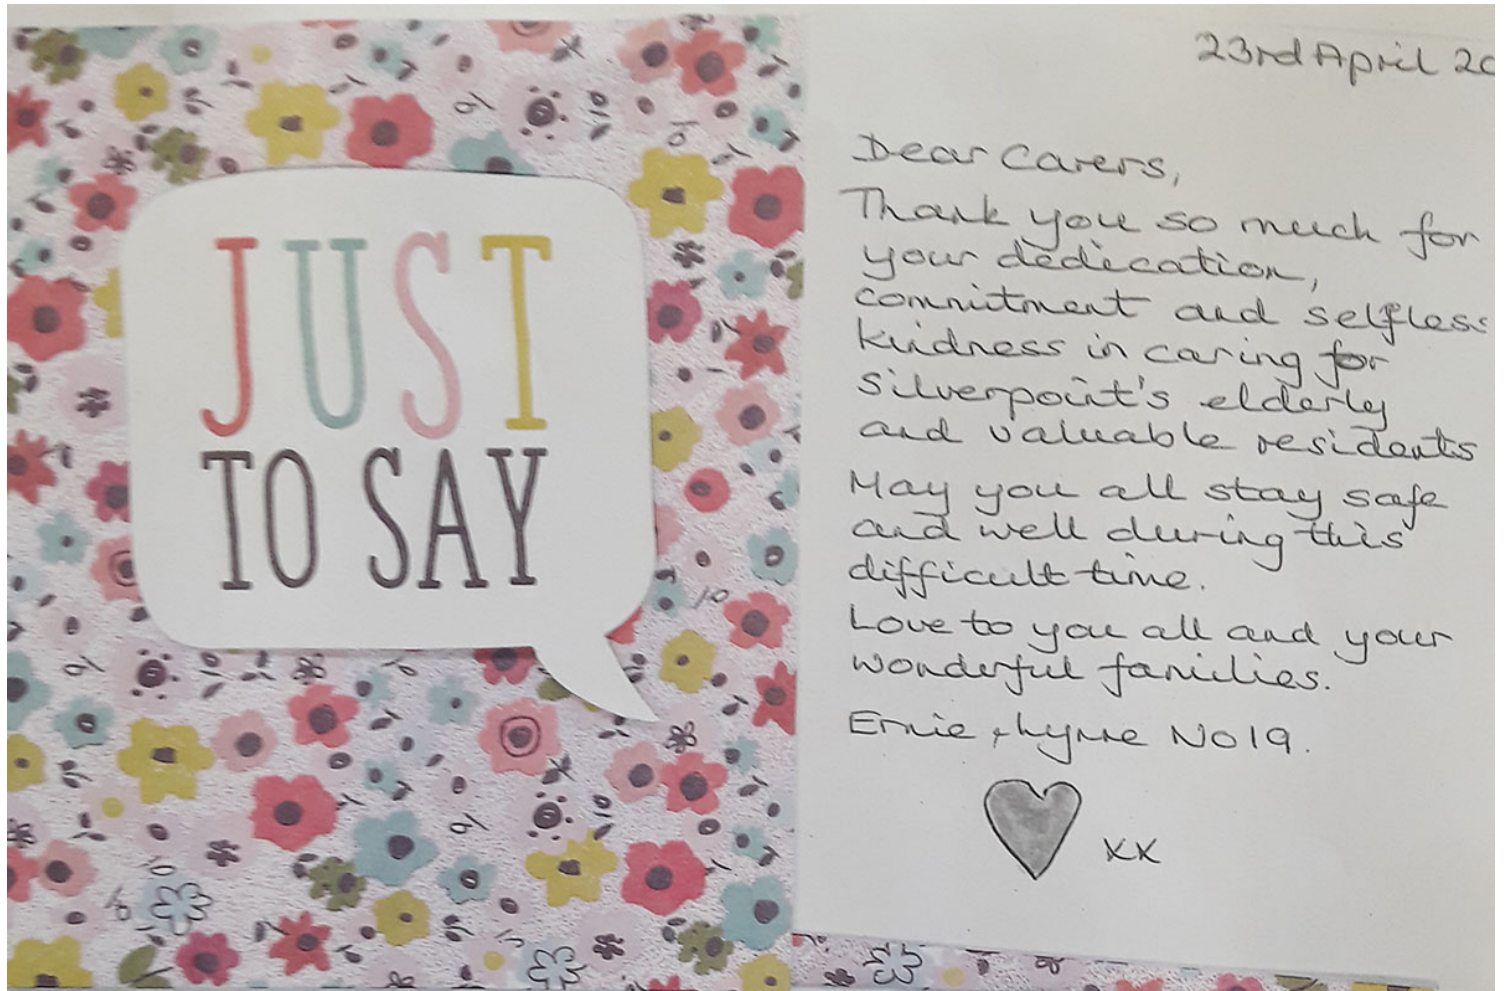 JUST
TO SAY
23rd April 20
Dear Carers,
Thank you so much for
your dedication,
commitment and selfless
kindness in caring for
Silverpoint's elderly
and valuable residents
May you all stay safe
and well during this
difficult time.
Love to you all and your
wonderful families.
Ernie + Lynne No 19.
xx